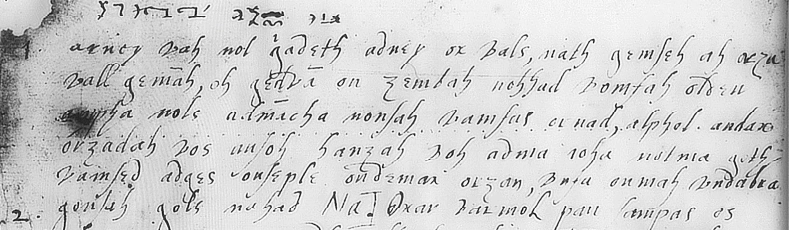 arney vah nol gadeth adney ox vals, nath gemseh ah orza
vall gemāh, oh gedvā on zembah nohhad vomfah olden
ampha nols admācha nonsah vamfas ornad, alphol andax
orzadah vos ansoh hanzah voh adma ioha notma goth
vamsed adges onseple ondemax orzan, vnfa onmah vndabra
gonsah gols nahad Na.
2. Oxar varmol pan sampas os